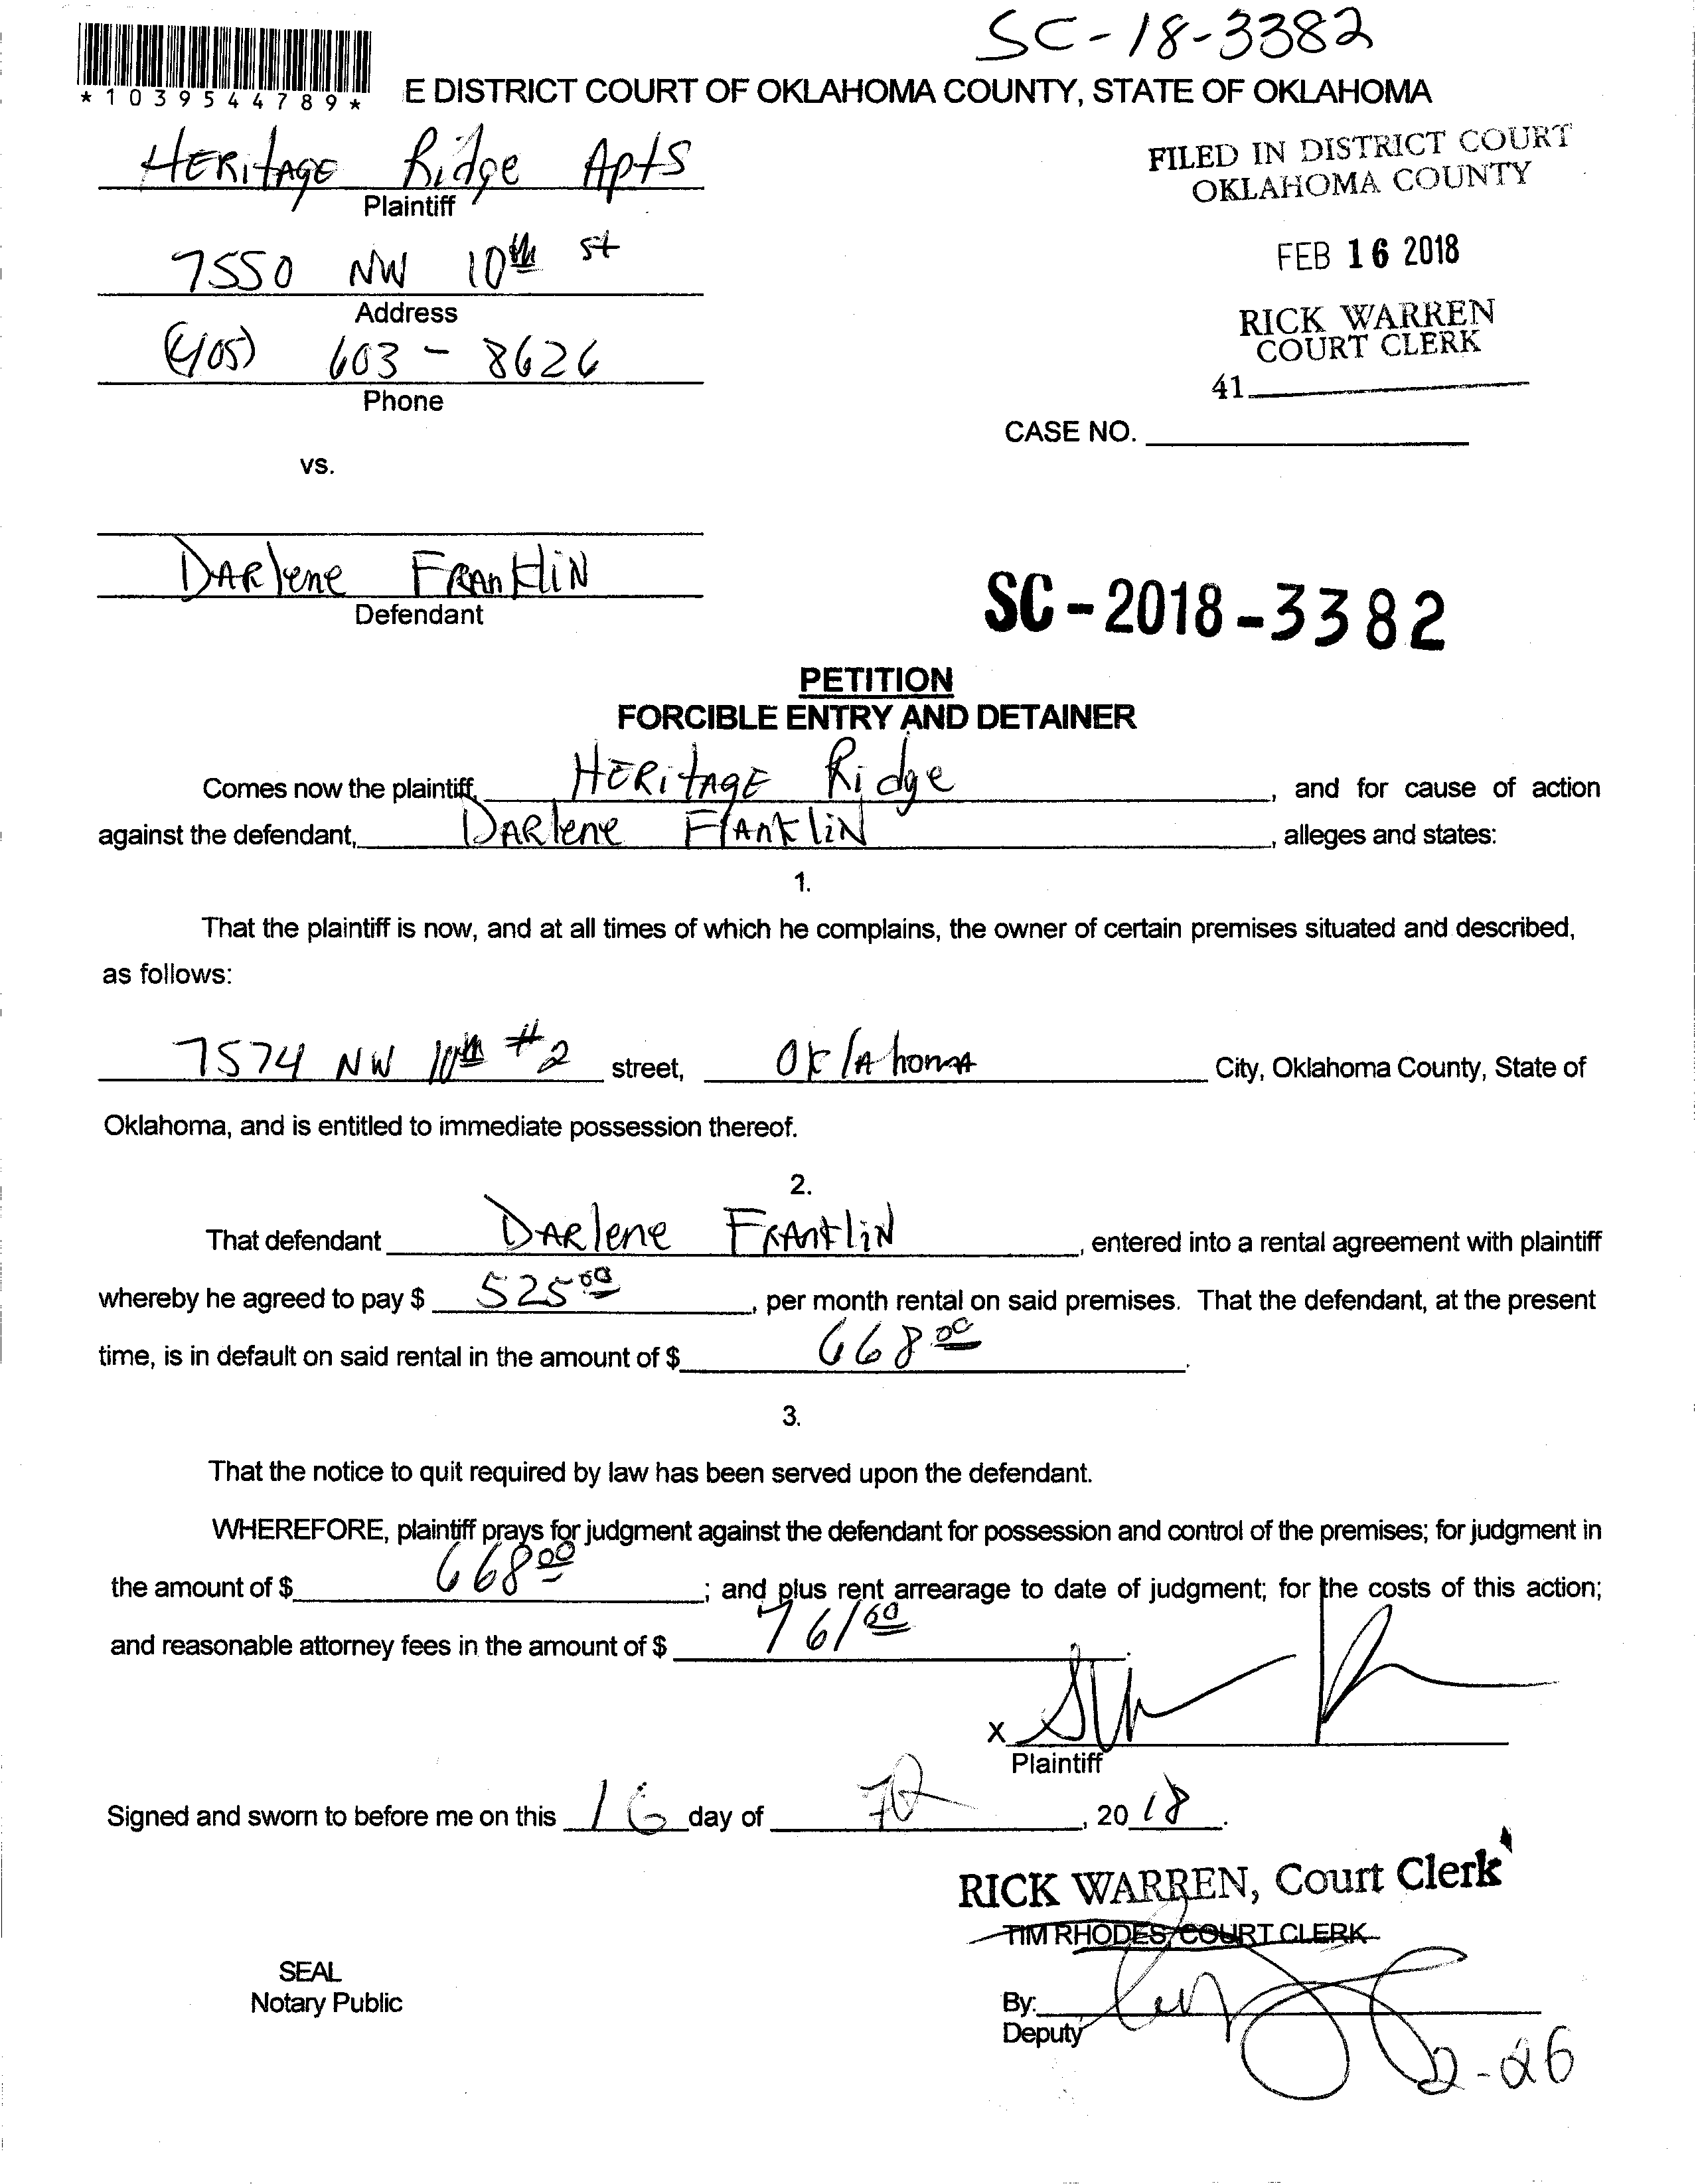 SC-18-3382
*1039544789*
E DISTRICT COURT OF OKLAHOMA COUNTY, STATE OF OKLAHOMA
HERitAGE Ridge Apts
Plaintiff
FILED IN DISTRICT COURT
OKLAHOMA COUNTY
7550 NW 10th st
Address
FEB 16 2018
(405) 603-8626
Phone
RICK WARREN
COURT CLERK
41
CASE NO.
vs.
DARlene FRAnkliN
Defendant
SC-2018-3382
PETITION
FORCIBLE ENTRY AND DETAINER
Comes now the plaintiff, HERitAGE Ridge, and for cause of action
against the defendant, DARlene FRAnkliN, alleges and states:
1.
That the plaintiff is now, and at all times of which he complains, the owner of certain premises situated and described,
as follows:
7574 NW 10th #2 street, OklAhomA City, Oklahoma County, State of
Oklahoma, and is entitled to immediate possession thereof.
2.
That defendant DARlene FRAnkliN, entered into a rental agreement with plaintiff
whereby he agreed to pay $ 525 00, per month rental on said premises. That the defendant, at the present
time, is in default on said rental in the amount of $ 668 00.
3.
That the notice to quit required by law has been served upon the defendant.
WHEREFORE, plaintiff prays for judgment against the defendant for possession and control of the premises; for judgment in
the amount of $ 668 00; and plus rent arrearage to date of judgment; for the costs of this action;
and reasonable attorney fees in the amount of $ 761 60.
X
Plaintiff
Signed and sworn to before me on this 16 day of , 2018.
RICK WARREN, Court Clerk
TIM RHODES, COURT CLERK
SEAL
Notary Public
By:
Deputy
2-26